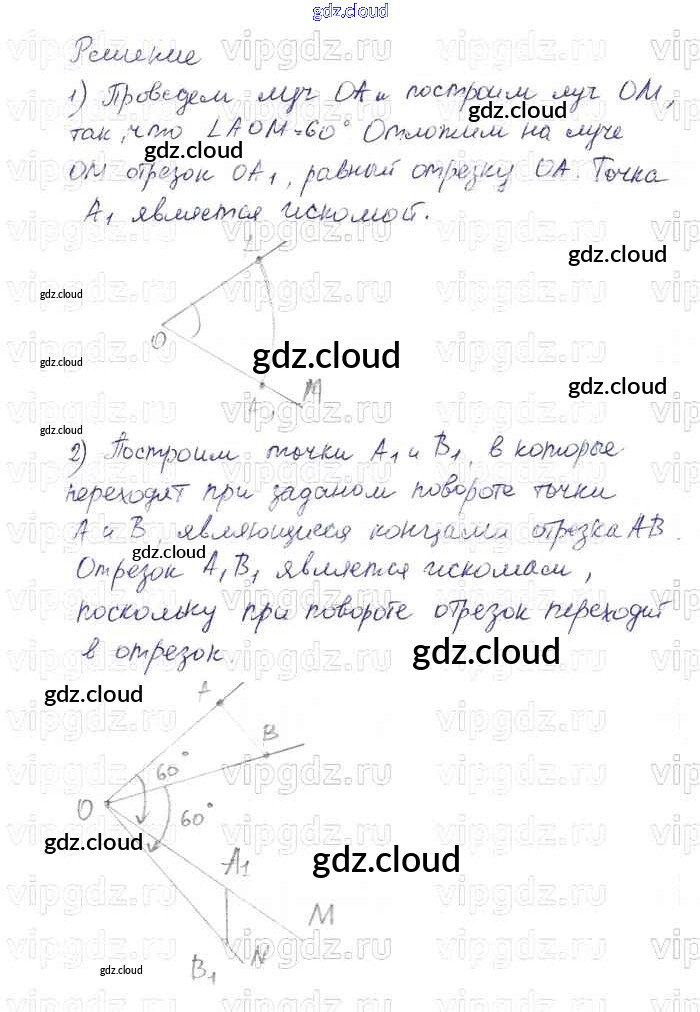 gdz.cloud
Решение
1) Проведем луч OA и построим луч OM,
так, что ∠AOM=60° Отложим на луче
gdz.cloud
gdz.cloud
OM отрезок OA₁, равный отрезку OA. Точка
A₁ является искомой.
gdz.cloud
gdz.cloud
O
gdz.cloud
gdz.cloud
gdz.cloud
A₁
M
gdz.cloud
2) Построим точки A₁ и B₁, в которые
переходят при заданом повороте точки
A и B, являющиеся концами отрезка AB.
gdz.cloud
Отрезок A₁B₁ является искомасм,
поскольку при повороте отрезок переходит
в отрезок.
gdz.cloud
gdz.cloud
A
B
60°
O
60°
gdz.cloud
gdz.cloud
A₁
M
N
B₁
gdz.cloud
vipgdz.ru